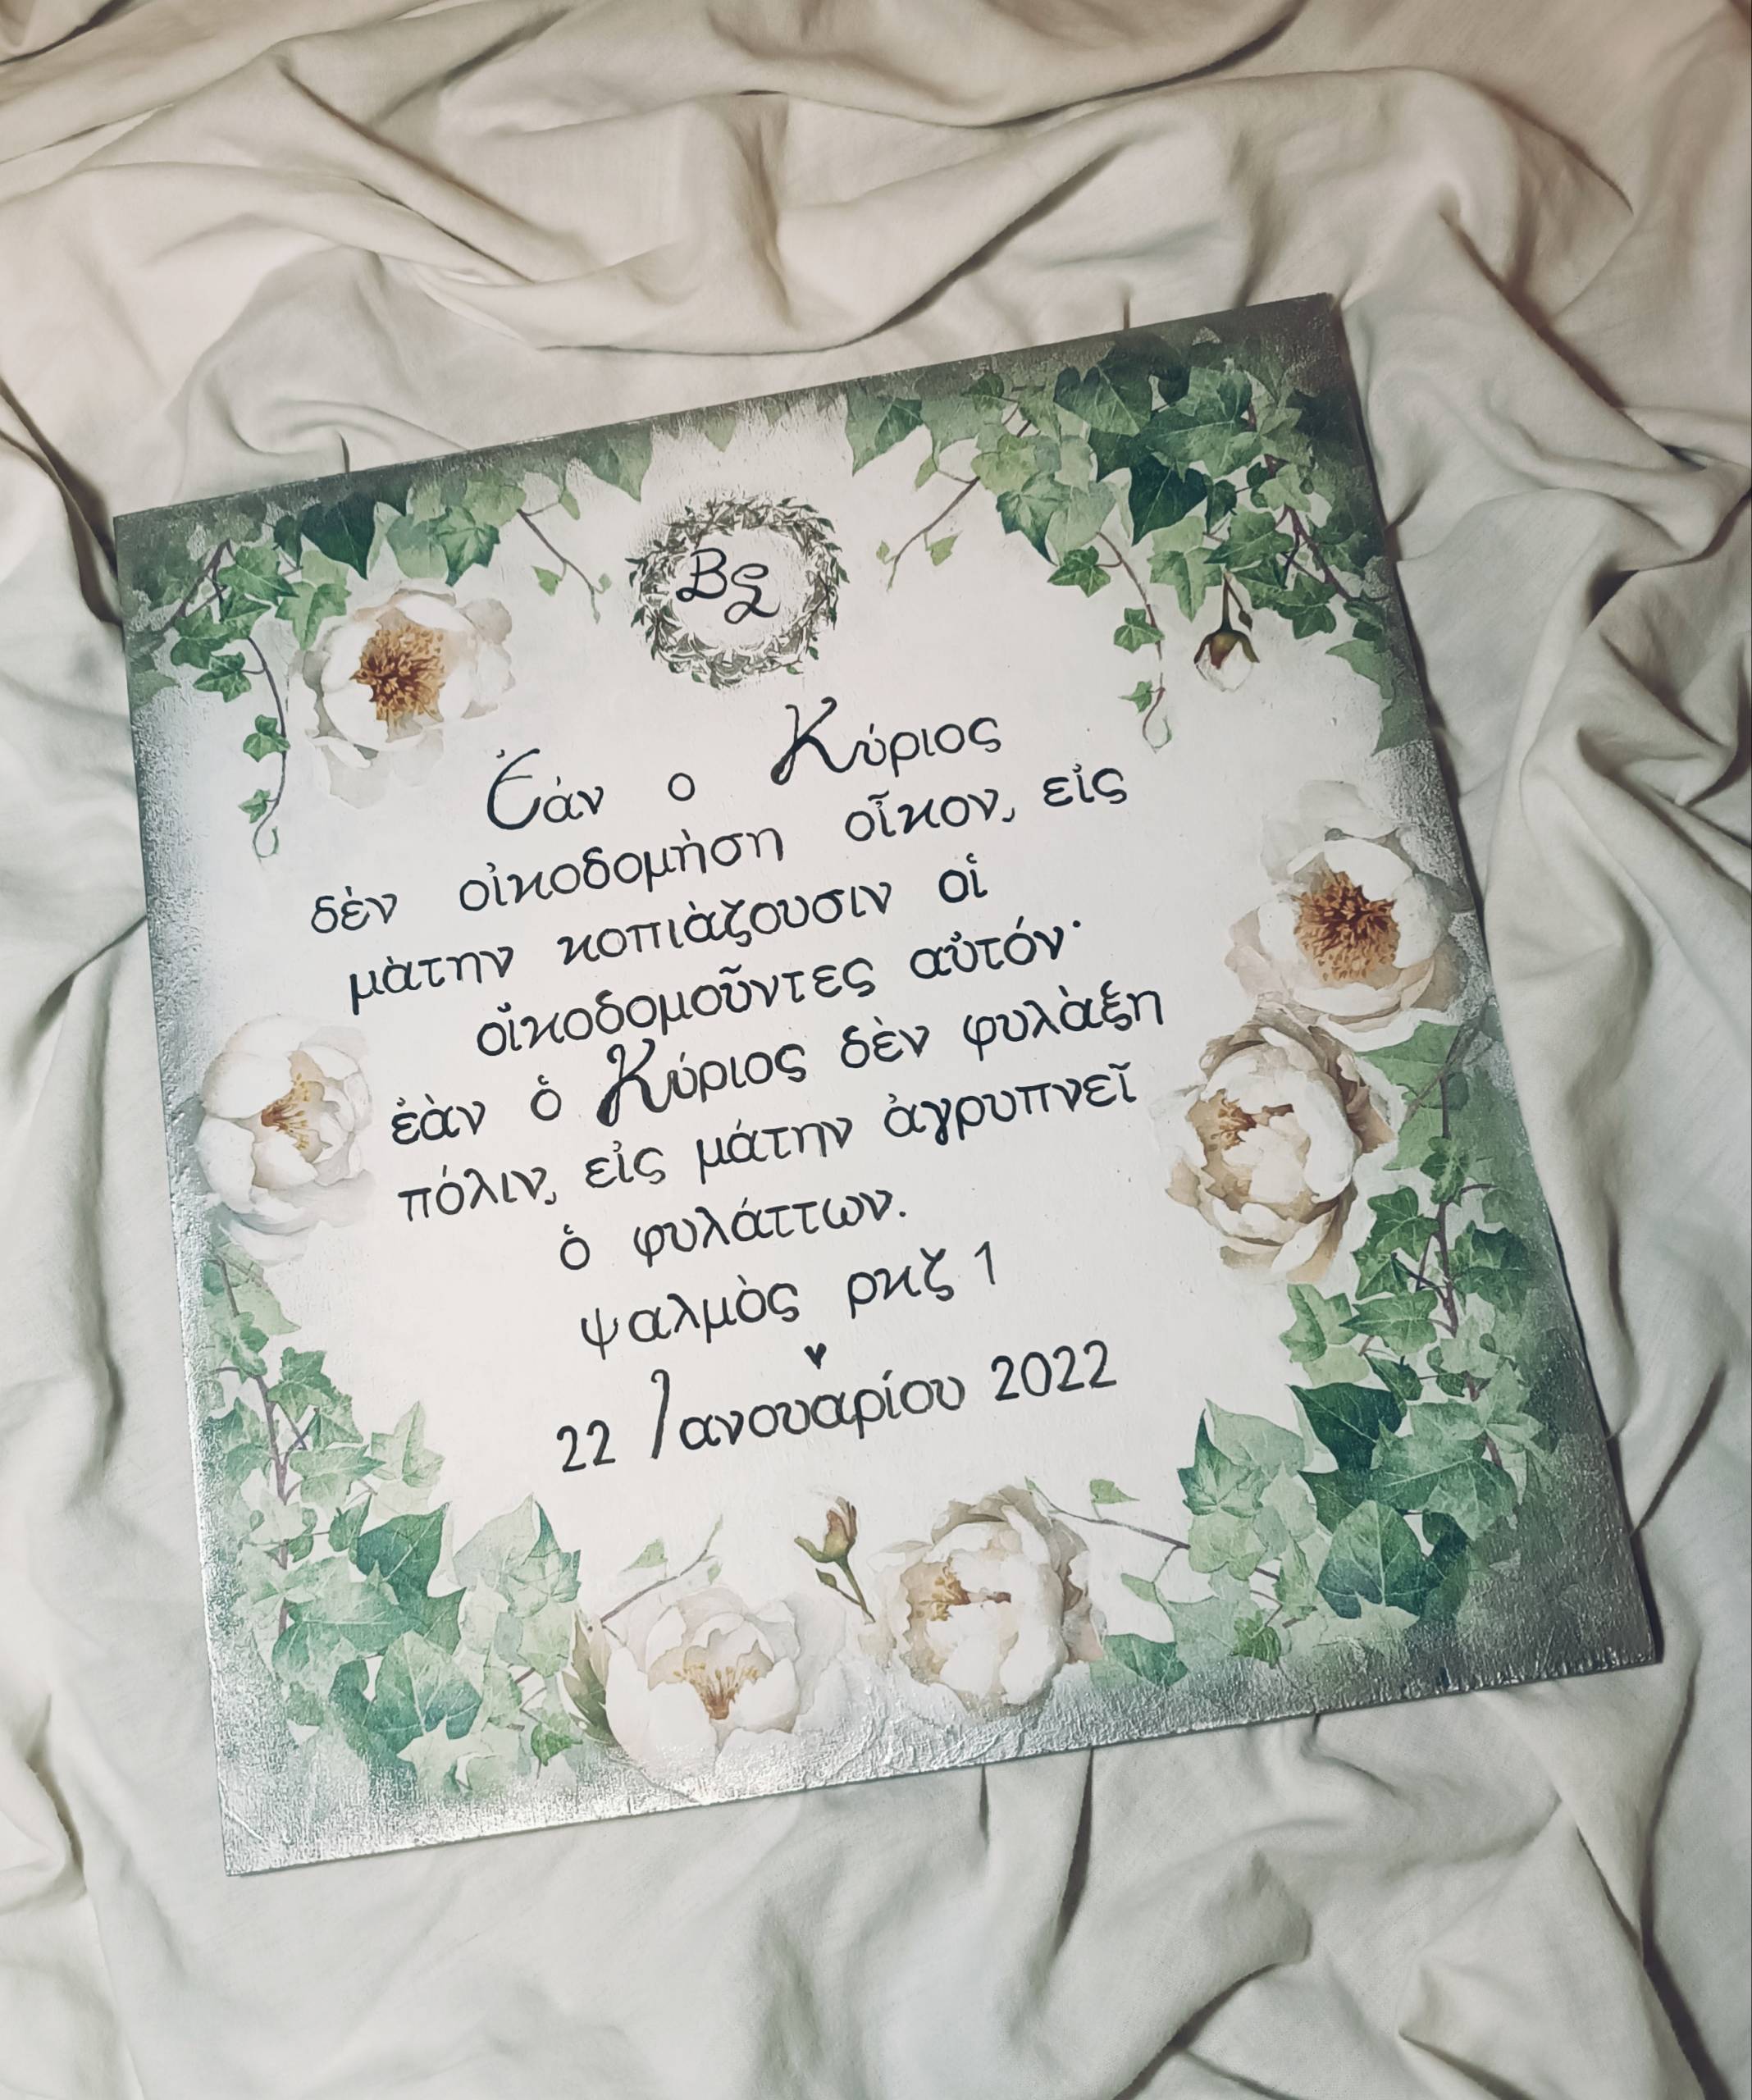 ΒΣ
Ἐάν ο Κύριος
δὲν οἰκοδομὴση οἶκον, εἰς
μὰτην κοπιὰζουσιν οἱ
οἴκοδομοῦντες αὐτόν·
ἐὰν ὁ Κύριος δὲν φυλὰξη
πόλιν, εἰς μάτην ἀγρυπνεῖ
ὁ φυλάττων.
ψαλμὸς ρκζ 1
22 Ιανουαρίου 2022